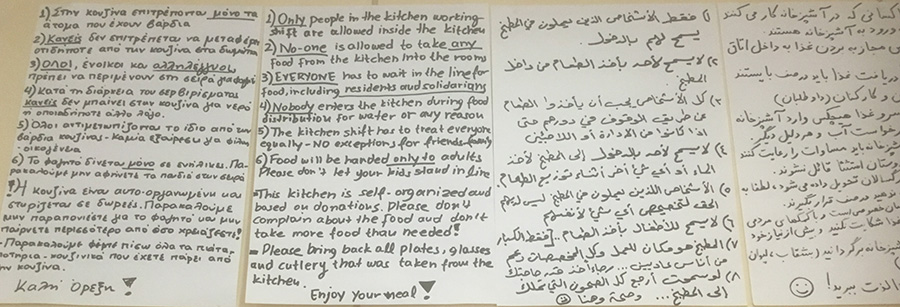 1) Στην κουζίνα επιτρέπονται μόνο τα
άτομα που έχουν βάρδια
2) Κανείς δεν επιτρέπεται να μεταφέρει
οτιδήποτε από την κουζίνα στα δωμάτια
3) ΟΛΟΙ, ένοικοι και αλληλέγγυοι
πρέπει να περιμένουν στη σειρά για φαγητό
4) Κατά τη διάρκεια του σερβιρίσματος
κανείς δεν μπαίνει στην κουζίνα για νερό
ή οποιοδήποτε άλλο λόγο.
5) Όλοι αντιμετωπίζονται το ίδιο από την
βάρδια κουζίνας - Καμία εξαίρεση για φίλους
- οικογένεια
6) Το φαγητό δίνεται μόνο σε ενήλικες. Πα-
ρακαλούμε μην αφήνετε τα παιδιά στην σειρά
! Η κουζίνα είναι αυτο-οργανωμένη και
στηρίζεται σε δωρεές. Παρακαλούμε
μην παραπονιέστε για το φαγητό και μην
παίρνετε περισσότερο από όσο χρειάζεστε!
- Παρακαλούμε φέρτε πίσω όλα τα πιάτα,
ποτήρια - κουζινικά που έχετε πάρει από
την κουζίνα.
Καλή όρεξη!
1) Only people in the kitchen working-
shift are allowed inside the kitchen
2) No-one is allowed to take any
food from the kitchen into the rooms
3) EVERYONE has to wait in the line for
food, including residents and solidarians
4) Nobody enters the kitchen during food
distribution for water or any reason
5) The kitchen shift has to treat everyone
equally - NO exceptions for friends, family
6) Food will be handed only to adults
Please don't let your kids stand in line
This kitchen is self-organized and
based on donations. Please don't
complain about the food and don't
take more food than needed!
- Please bring back all plates, glasses
and cutlery that was taken from the
kitchen.
Enjoy your meal!
١) فقط الأشخاص الذين يعملون في المطبخ
يسمح لهم بالدخول.
٢) لا يسمح لأحد بأخذ الطعام من داخل
المطبخ.
٣) كل الأشخاص يجب أن يأخذوا الطعام
عن طريق الوقوف في دورهم حتى
إذا كانوا من الإدارة أو اللاجئين
٤) لا يسمح لأحد بالدخول إلى المطبخ لأخذ
الماء أو أي شيء آخر أثناء توزيع الطعام.
٥) الأشخاص اللذين يعملون في المطبخ ليس لديهم
الحق لتخصيص أي شيء لأنفسهم
٦) لا يسمح للأطفال بأخذ الطعام.. [فقط الكبار
٧) المطبخ هو مكان للعمل وكل المخصصات
من أناس عاديين... رجاءً خذ قدر حاجتك
٨) لو سمحت أرجع كل الصحون التي
إلى المطبخ... وصحة وهنا
که در آشپزخانه کار می کنند
ورود به آشپزخانه هستند.
مجاز به بردن غذا به داخل اتاق
دریافت غذا باید در صف بایستند
و کارکنان (داوطلبان)
سرو غذا هیچکس وارد آشپزخانه
باید مساوات را رعایت کنند
استثنا قائل نشوند.
تحویل داده می شود، لطفا به
در صف قرار بگیرند.
شکایت نکنید و بیش از نیاز خود
برگردانید
لذت ببرید!